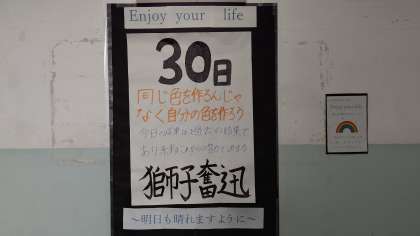 Enjoy your life
30日
同じ色を作るんじゃ
なく自分の色を作ろう
今日の結果は過去の結果で
あり未来はこれからの努力で決まる
獅子奮迅
～明日も晴れますように～